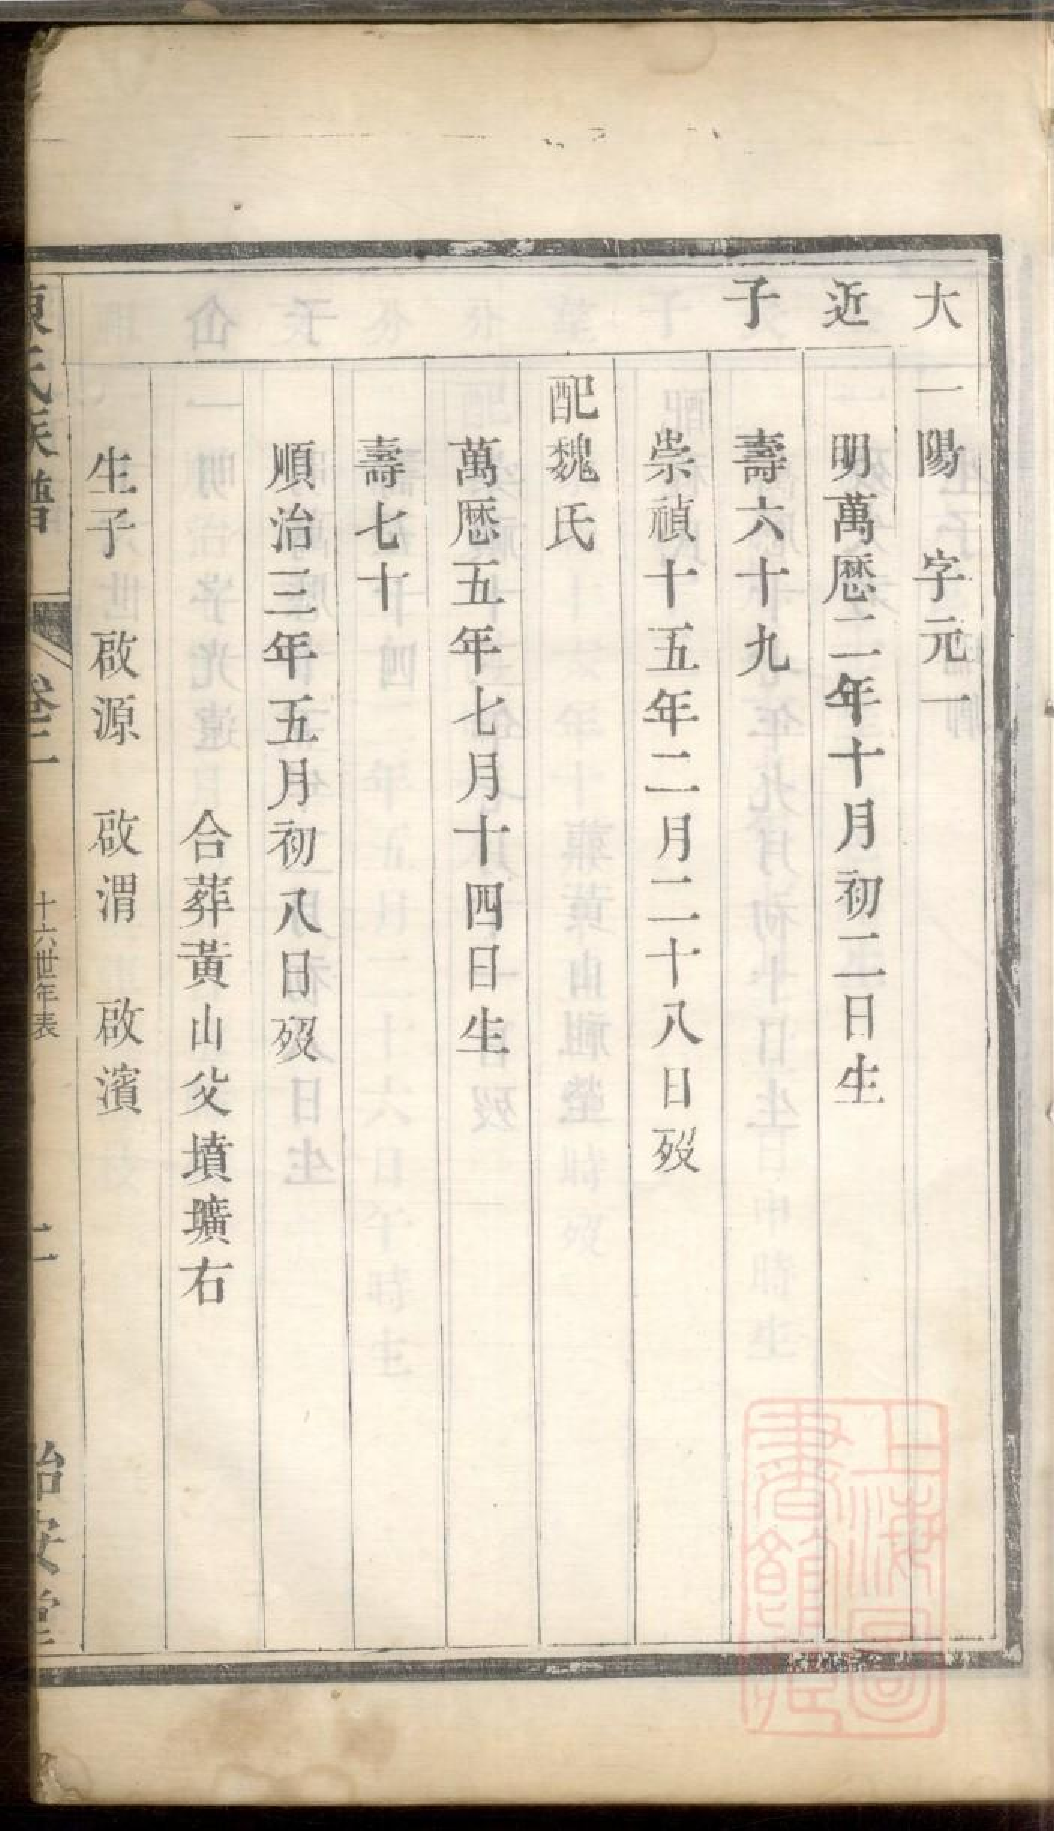 大近子
一陽　字元一
明萬厯二年十月初二日生
壽六十九
崇禎十五年二月二十八日歿
配魏氏
萬厯五年七月十四日生
壽七十
順治三年五月初八日歿
合葬黃山父墳壙右
生子　啟源　啟渭　啟濱
陳氏族譜　卷二　十六世年表　二　治安堂
上海圖書館藏